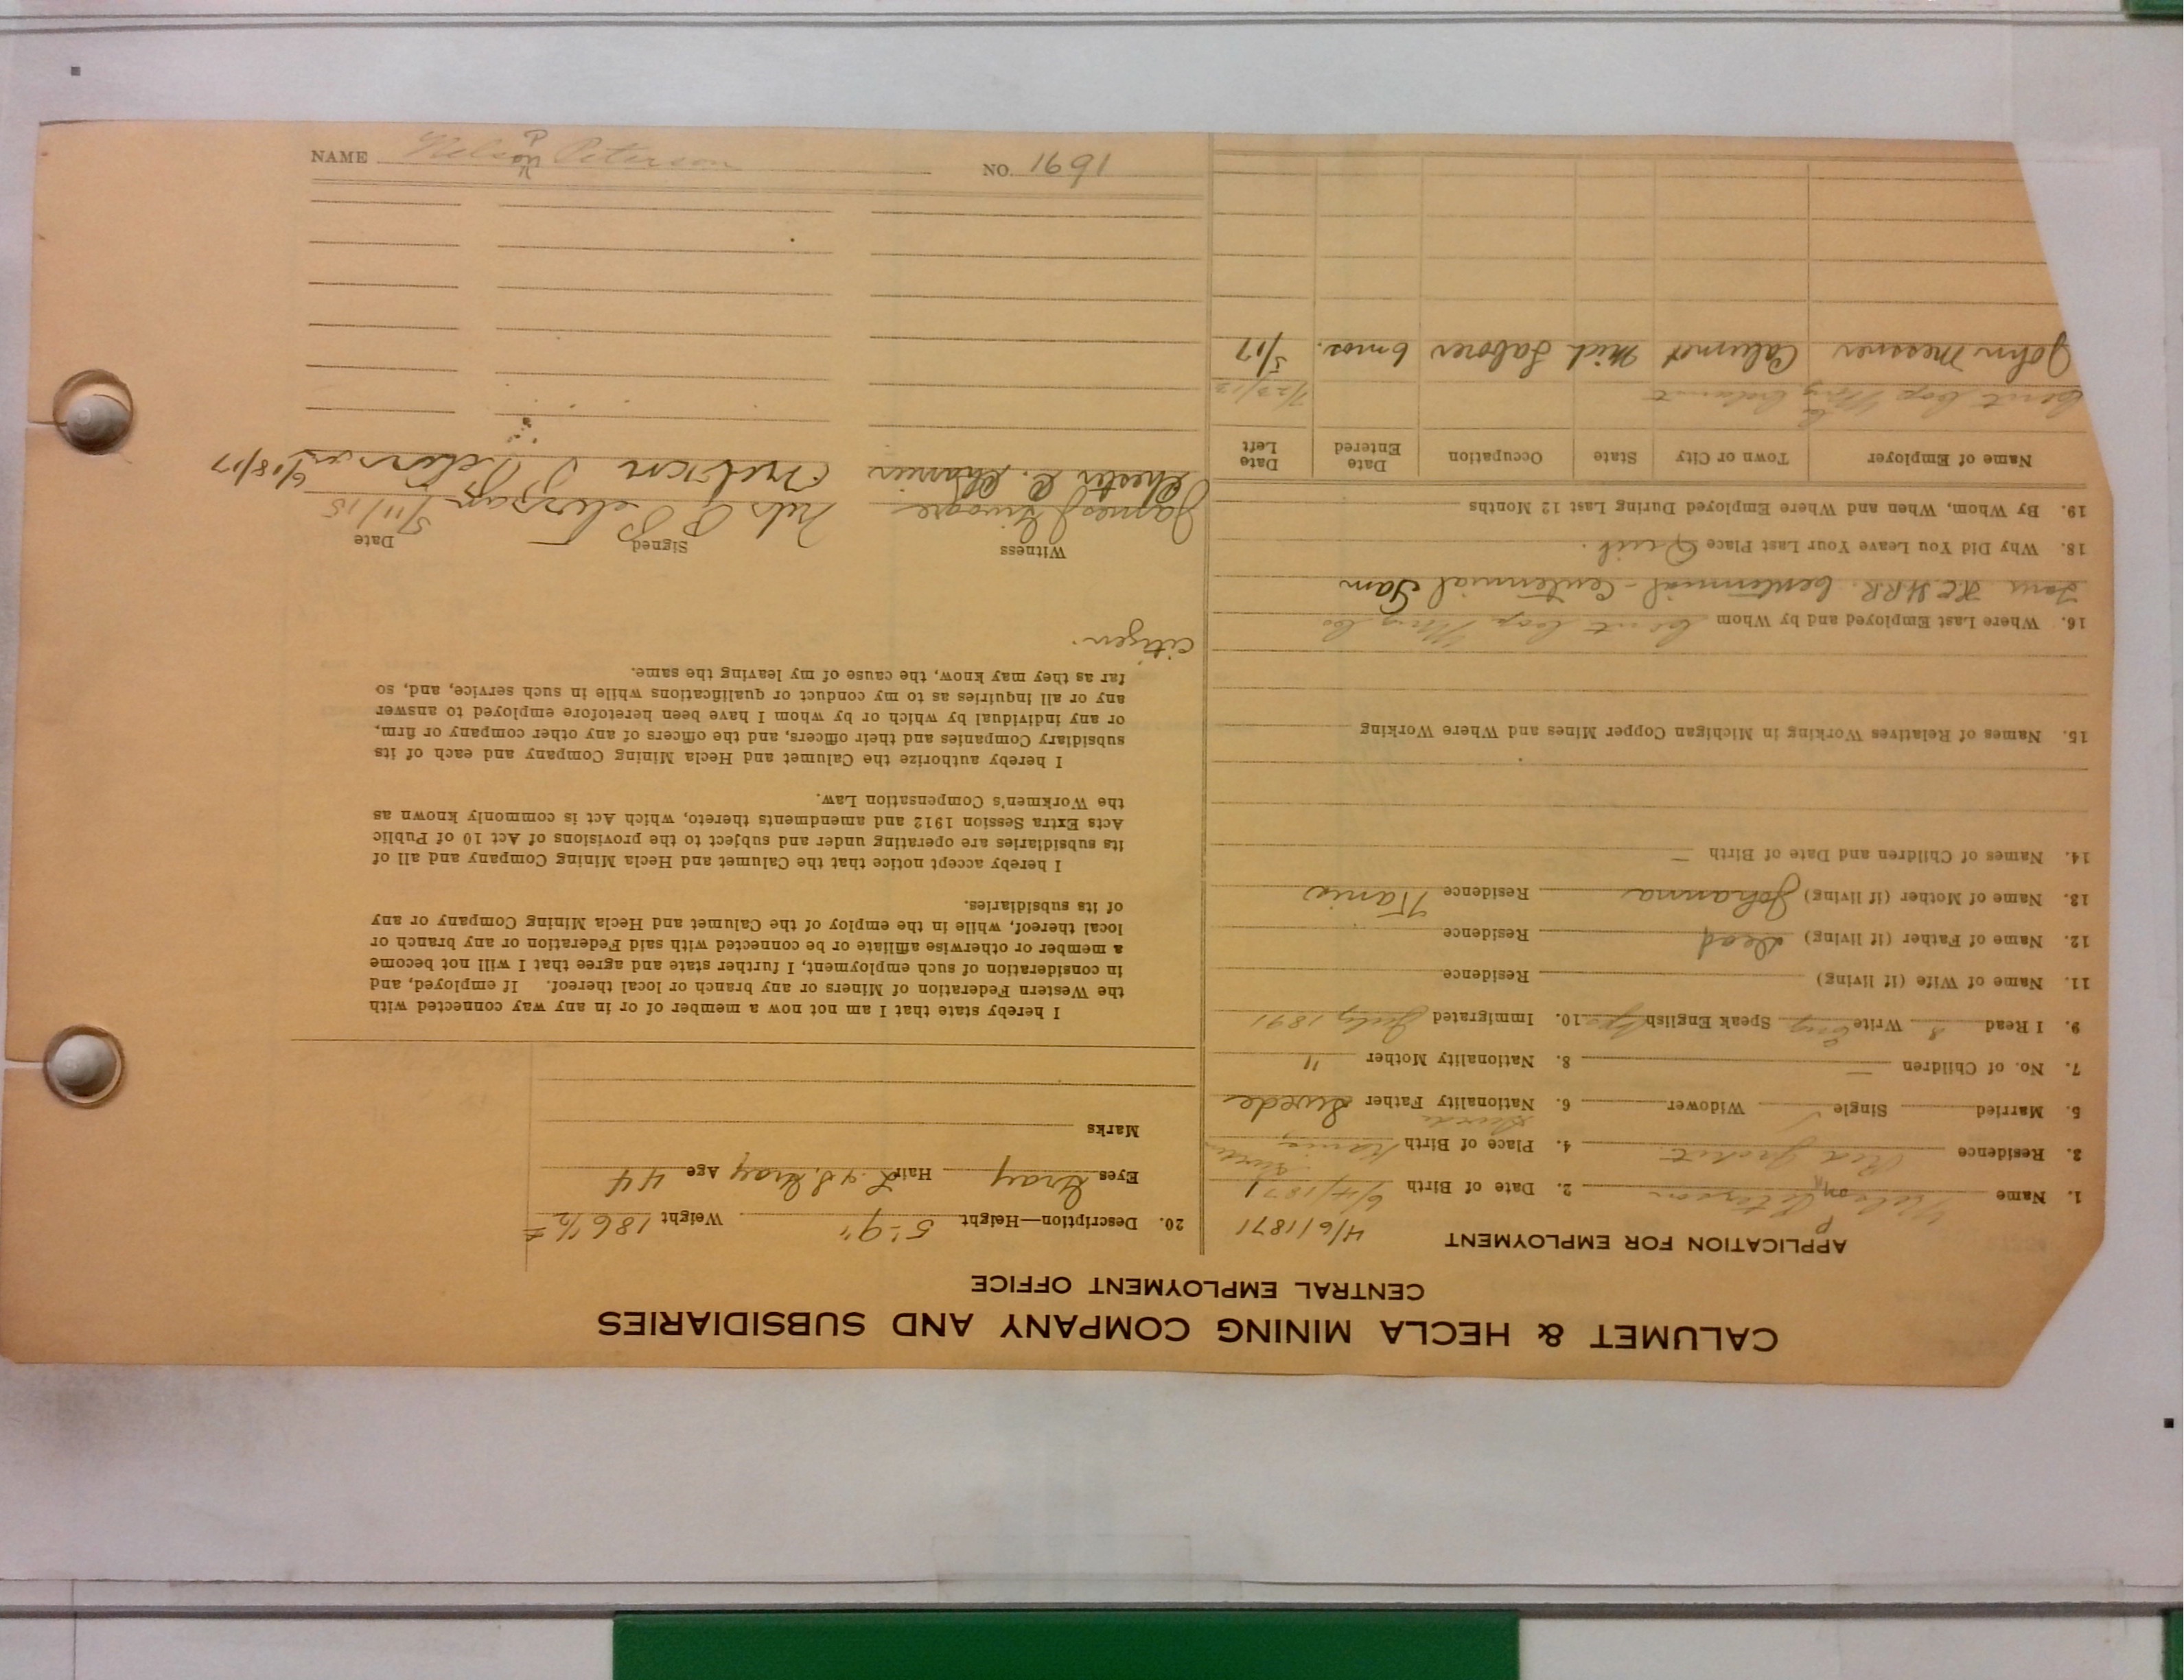 CALUMET & HECLA MINING COMPANY AND SUBSIDIARIES
CENTRAL EMPLOYMENT OFFICE
APPLICATION FOR EMPLOYMENT 4/6/1871
1. Name Nelson P Peterson 2. Date of Birth 6/4/1871
3. Residence Red Jacket 4. Place of Birth Sweden
5. Married Single ✓ Widower 6. Nationality Father Swede
7. No. of Children — 8. Nationality Mother "
9. I Read Write Speak English yes 10. Immigrated July 1891
11. Name of Wife (if living) Residence
12. Name of Father (if living) Dead Residence
13. Name of Mother (if living) Johanna Residence
14. Names of Children and Date of Birth —
15. Names of Relatives Working in Michigan Copper Mines and Where Working
16. Where Last Employed and by Whom Cent Cop Mng Co
Centennial - Centennial
18. Why Did You Leave Your Last Place Quit.
19. By Whom, When and Where Employed During Last 12 Months
Name of Employer Town or City State Occupation Date Entered Date Left
Cent Cop Mng Co Calumet
John Messner Calumet Mich Laborer 6 mos. 5/17
20. Description—Height 5-9" Weight 186 1/2
Eyes Gray Hair Gray Age 44
Marks
I hereby state that I am not now a member of or in any way connected with
the Western Federation of Miners or any branch or local thereof. If employed, and
in consideration of such employment, I further state and agree that I will not become
a member or otherwise affiliate or be connected with said Federation or any branch or
local thereof, while in the employ of the Calumet and Hecla Mining Company or any
of its subsidiaries.
I hereby accept notice that the Calumet and Hecla Mining Company and all of
its subsidiaries are operating under and subject to the provisions of Act 10 of Public
Acts Extra Session 1912 and amendments thereto, which Act is commonly known as
the Workmen's Compensation Law.
I hereby authorize the Calumet and Hecla Mining Company and each of its
subsidiary Companies and their officers, and the officers of any other company or firm,
or any individual by which or by whom I have been heretofore employed to answer
any or all inquiries as to my conduct or qualifications while in such service, and, so
far as they may know, the cause of my leaving the same.
citizen.
Witness Signed Date
James Nels P Peterson 5/11/15
Chester C. Nelson P Peterson 6/18/17
NAME Nelson P Peterson NO. 1691